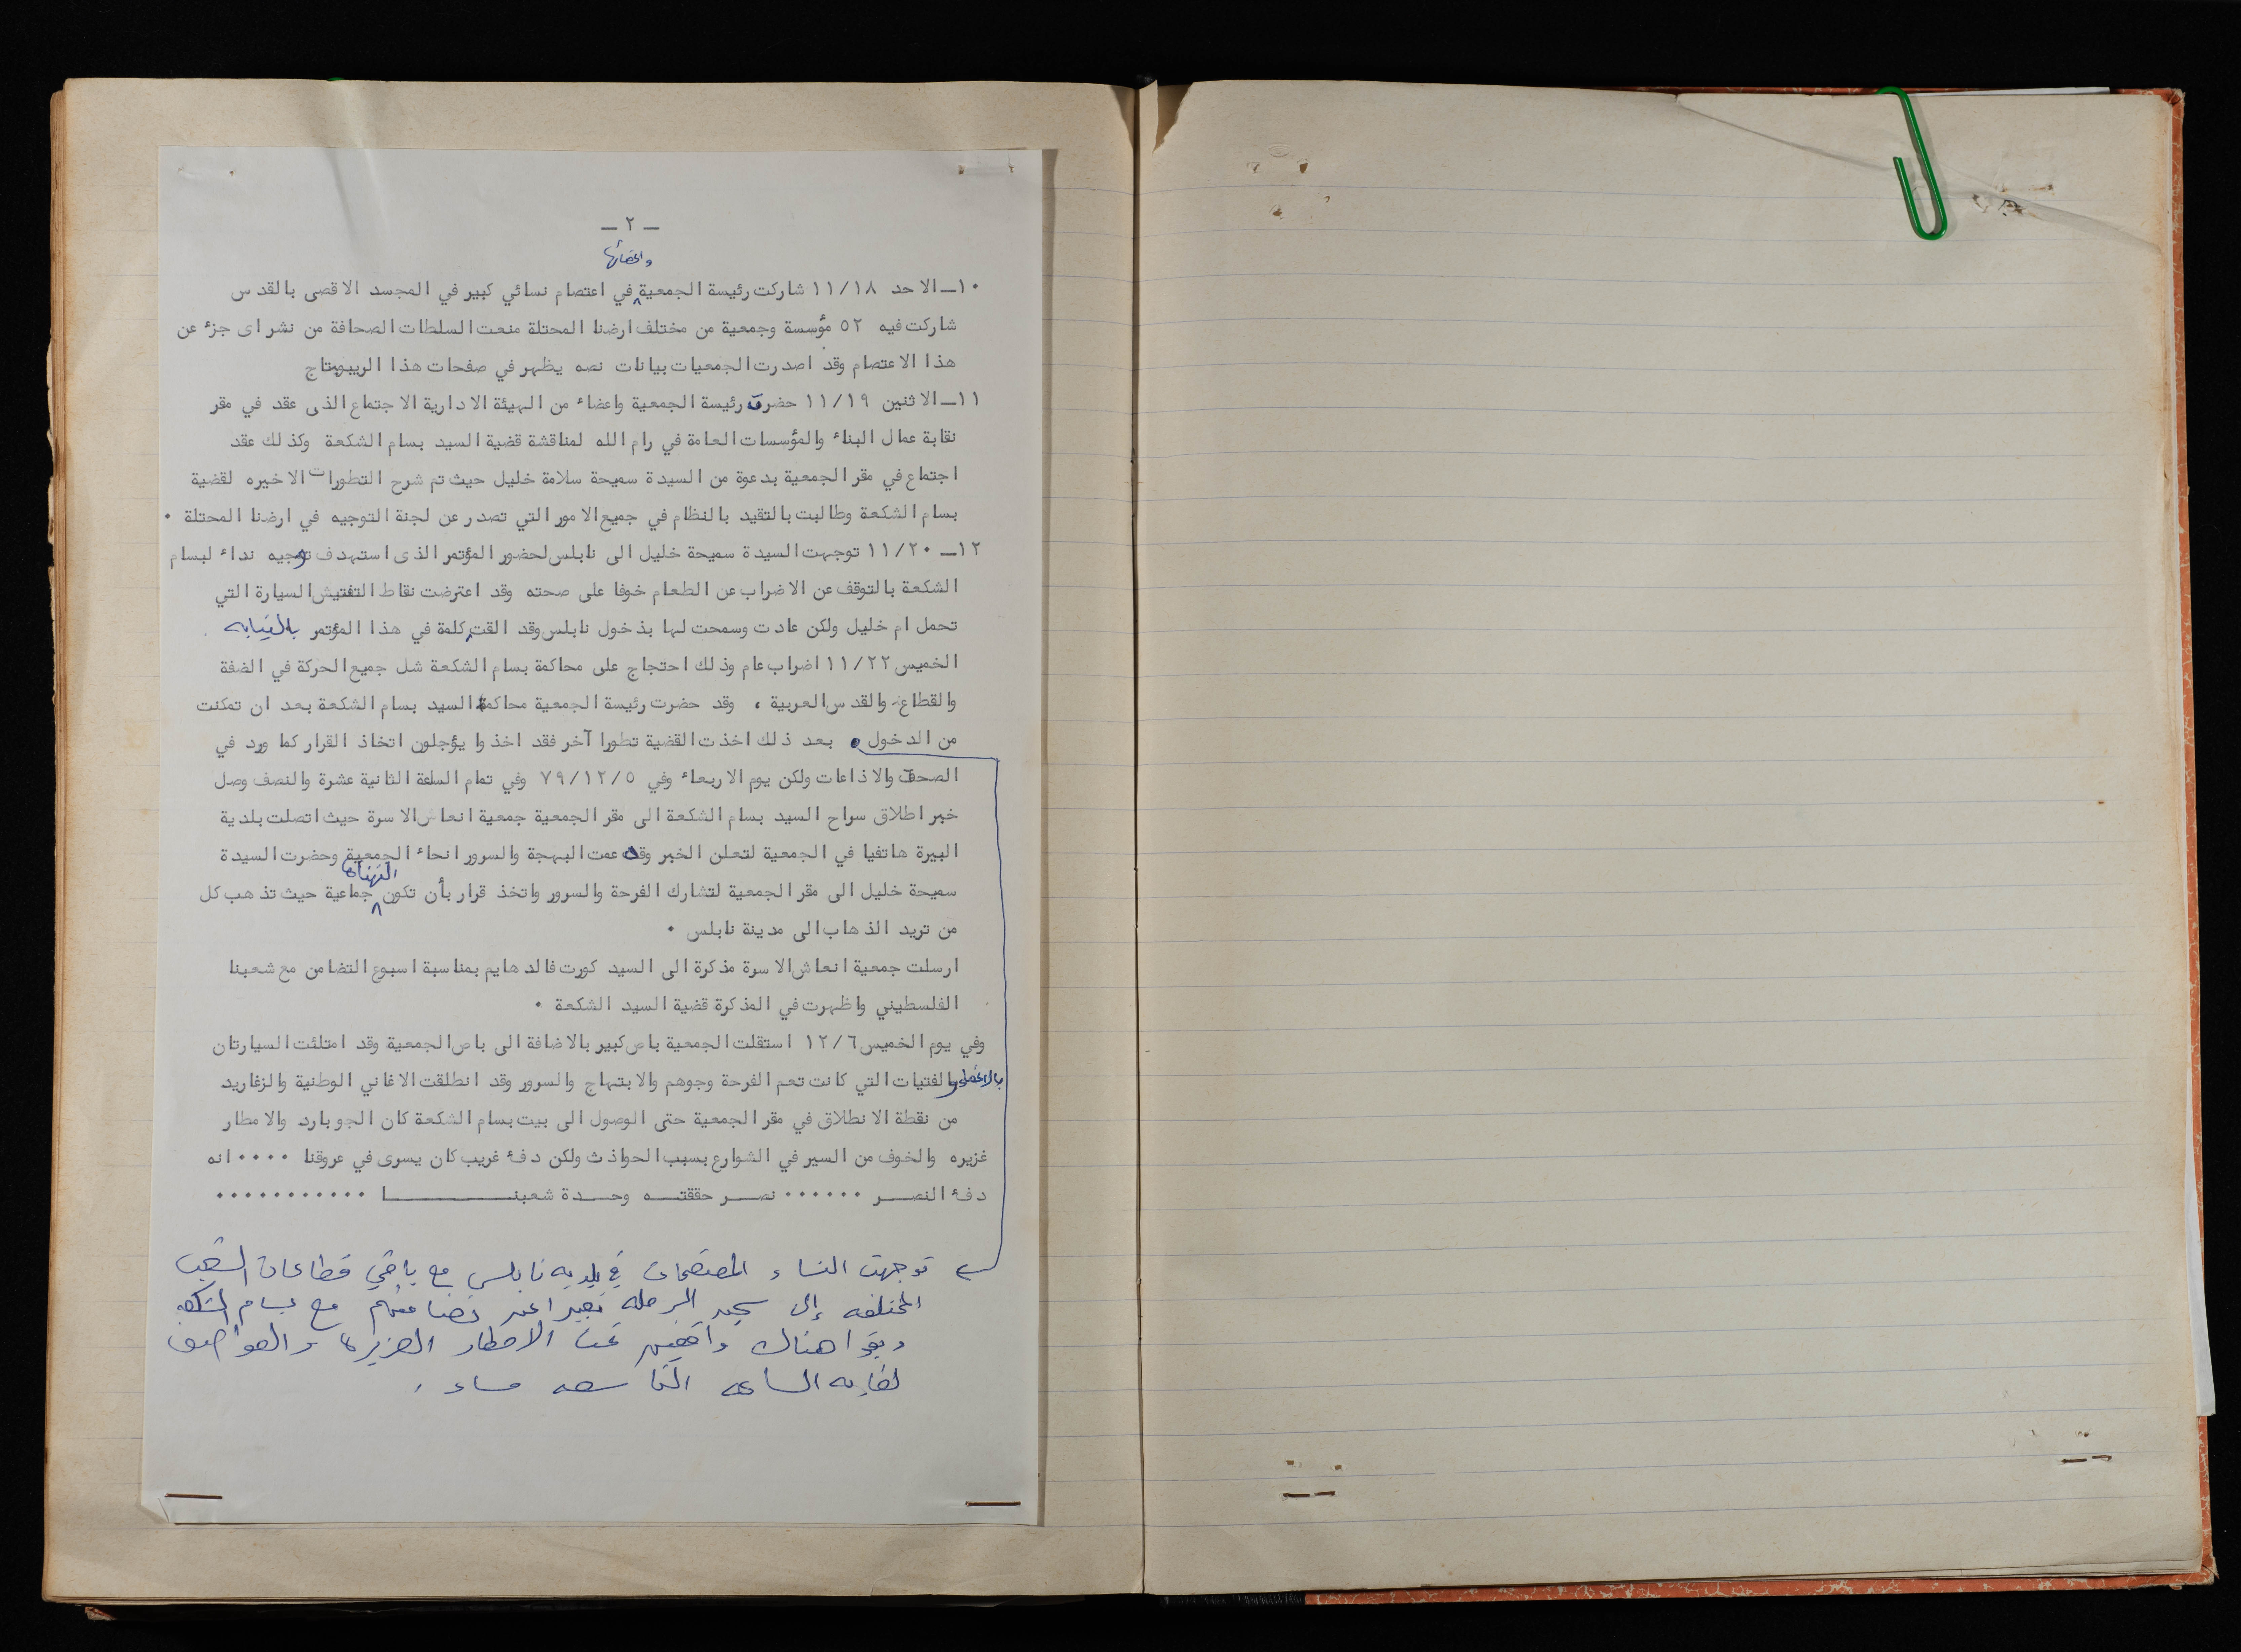 — ٢ —
واعضائها
١٠ـ الاحد ١١/١٨ شاركت رئيسة الجمعية في اعتصام نسائي كبير في المجسد الاقصى بالقدس
شاركت فيه ٥٢ مؤسسة وجمعية من مختلف ارضنا المحتلة منعت السلطات الصحافة من نشر اى جزء عن
هذا الاعتصام وقد اصدرت الجمعيات بيانات نصه يظهر في صفحات هذا الريبورتاج
١١ـ الاثنين ١١/١٩ حضرت رئيسة الجمعية واعضاء من الهيئة الادارية الاجتماع الذى عقد في مقر
نقابة عمال البناء والمؤسسات العامة في رام الله لمناقشة قضية السيد بسام الشكعة وكذلك عقد
اجتماع في مقر الجمعية بدعوة من السيدة سميحة سلامة خليل حيث تم شرح التطورات الاخيره لقضية
بسام الشكعة وطالبت بالتقيد بالنظام في جميع الامور التي تصدر عن لجنة التوجيه في ارضنا المحتلة .
١٢ـ ١١/٢٠ توجهت السيدة سميحة خليل الى نابلس لحضور المؤتمر الذى استهدف توجيه نداء لبسام
الشكعة بالتوقف عن الاضراب عن الطعام خوفا على صحته وقد اعترضت نقاط التفتيش السيارة التي
تحمل ام خليل ولكن عادت وسمحت لها بدخول نابلس وقد القت كلمة في هذا المؤتمر بالنيابه .
الخميس ١١/٢٢ اضراب عام وذلك احتجاج على محاكمة بسام الشكعة شل جميع الحركة في الضفة
والقطاع والقدس العربية ، وقد حضرت رئيسة الجمعية محاكمة السيد بسام الشكعة بعد ان تمكنت
من الدخول . بعد ذلك اخذت القضية تطورا آخر فقد اخذوا يؤجلون اتخاذ القرار كما ورد في
الصحف والاذاعات ولكن يوم الاربعاء وفي ٧٩/١٢/٥ وفي تمام الساعة الثانية عشرة والنصف وصل
خبر اطلاق سراح السيد بسام الشكعة الى مقر الجمعية جمعية انعاش الاسرة حيث اتصلت بلدية
البيرة هاتفيا في الجمعية لتعلن الخبر وقد عمت البهجة والسرور انحاء الجمعية وحضرت السيدة
سميحة خليل الى مقر الجمعية لتشارك الفرحة والسرور واتخذ قرار بأن تكون جماعية حيث تذهب كل
من تريد الذهاب الى مدينة نابلس .
ارسلت جمعية انعاش الاسرة مذكرة الى السيد كورت فالدهايم بمناسبة اسبوع التضامن مع شعبنا
الفلسطيني واظهرت في المذكرة قضية السيد الشكعة .
وفي يوم الخميس ١٢/٦ استقلت الجمعية باص كبير بالاضافة الى باص الجمعية وقد امتلئت السيارتان
والفتيات التي كانت تعم الفرحة وجوهم والابتهاج والسرور وقد انطلقت الاغاني الوطنية والزغاريد
من نقطة الانطلاق في مقر الجمعية حتى الوصول الى بيت بسام الشكعة كان الجو بارد والامطار
غزيره والخوف من السير في الشوارع بسبب الحواذث ولكن دفء غريب كان يسرى في عروقنا .... انه
دفء النصـــر ...... نصـــر حققتـــه وحـــدة شعبنـــــا ...........
توجهت النساء المعتصمات في بلدية نابلس مع باقي قطاعات الشعب
المختلفه إلى سجن الرمله تعبيرا عن تضامنهم مع بسام الشكعه
وبقوا هناك واقفين تحت الامطار الغزيرة والعواصف
لغايه الساعه التاسعه مساء .